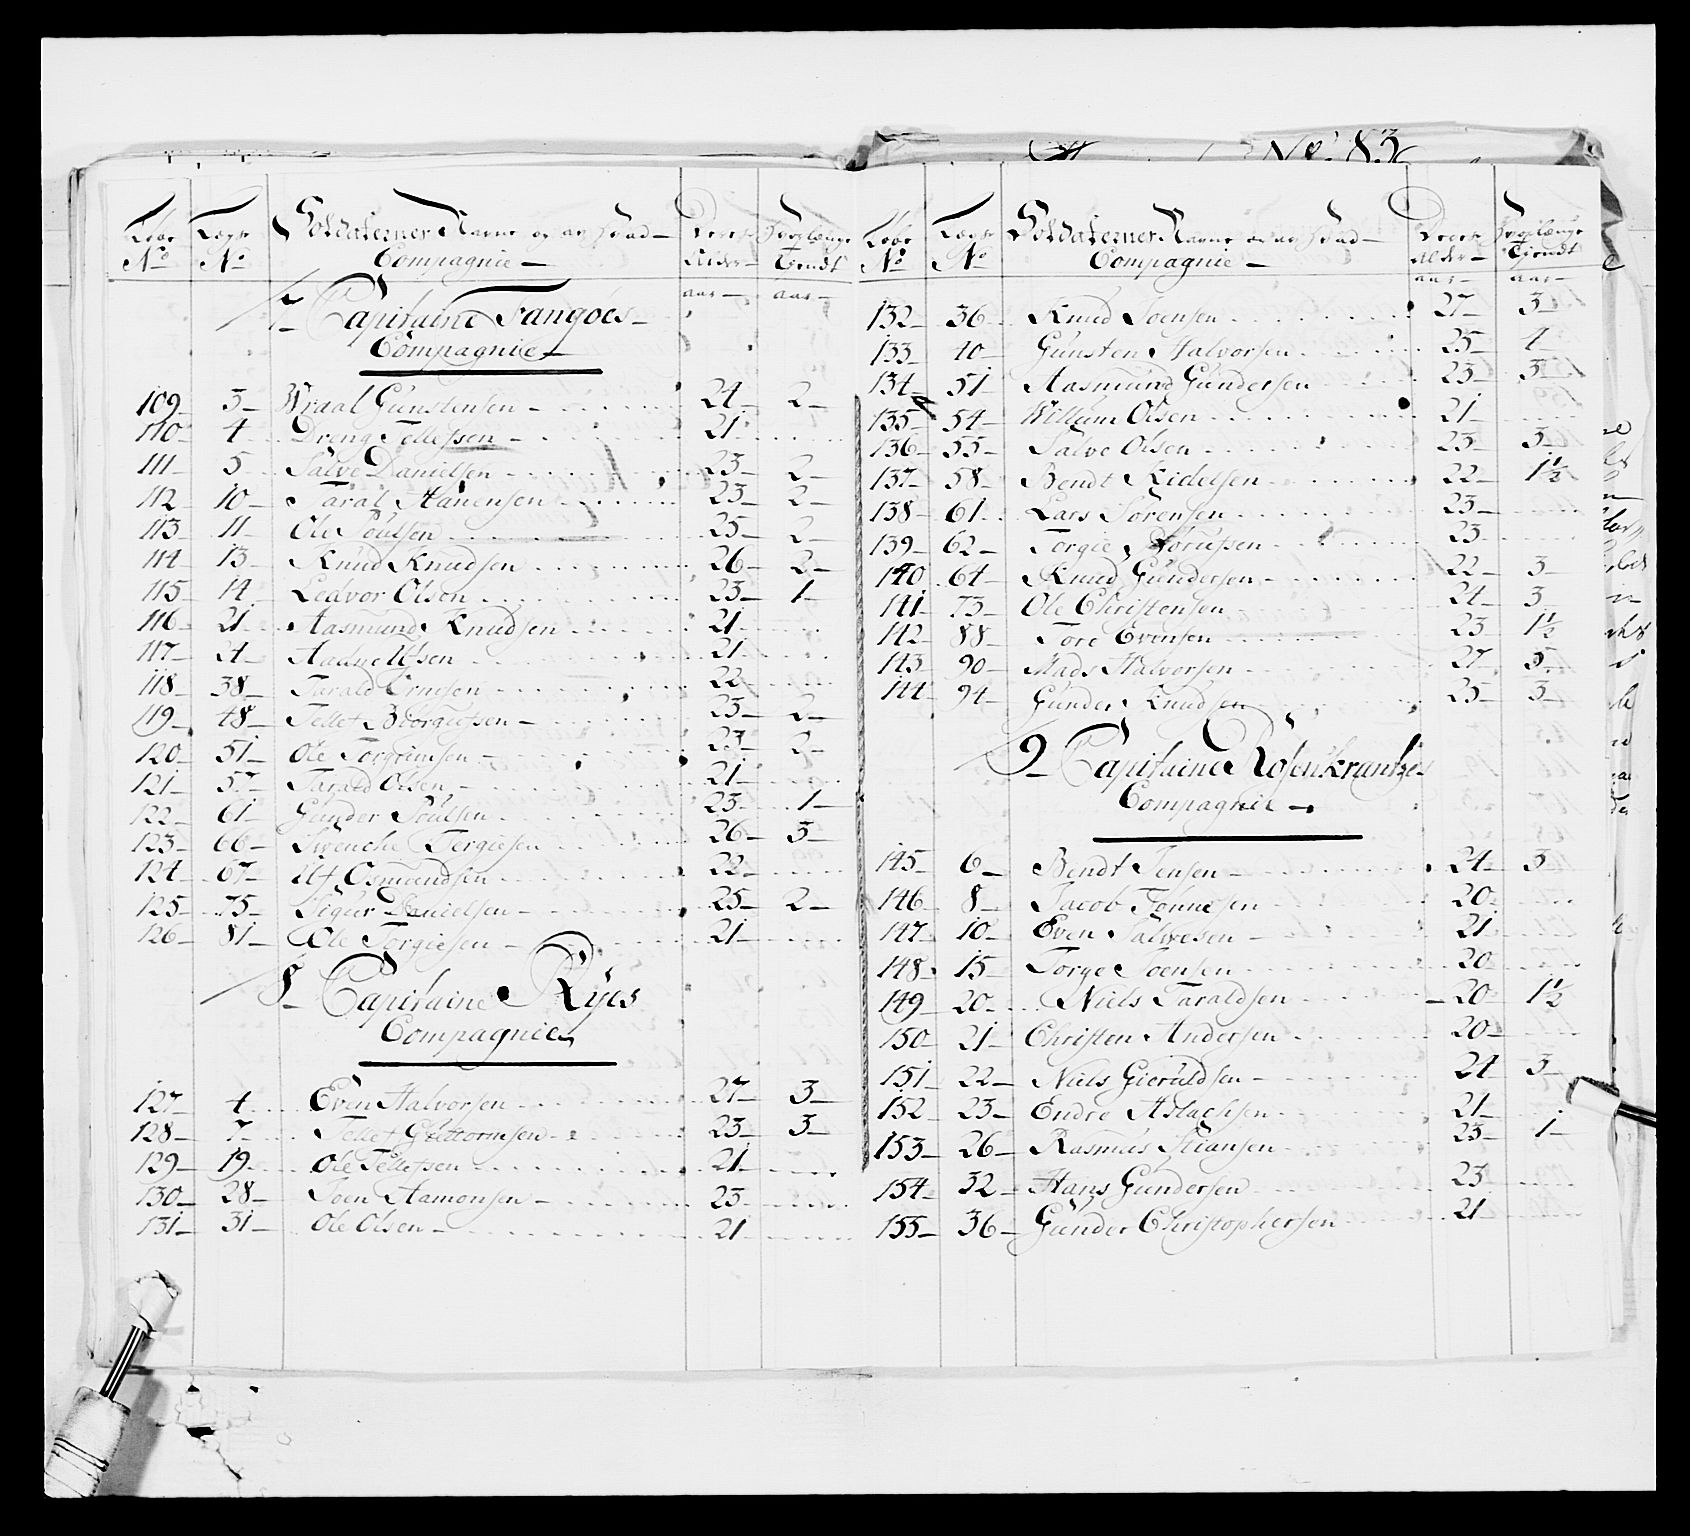 No. 83
Løbe No Lægs No Soldaternes Navne og af hvad Compagnie Deres Alder Hvorlænge Tjendt
aar aar
7 Capitaine Fangoes
Compagnie
109 3 Wraal Gunstensen 24 2
110 4 Dreng Tellefsen 21
111 5 Salve Danielsen 23 2
112 10 Taral Hanensen 23 2
113 11 Ole Poulsen 25 2
114 13 Knud Knudsen 26 2
115 14 Ledvor Olsen 23 1
116 21 Aasmund Knudsen 21
117 Aadne Ulsen 21
118 38 Tarald Ernisen 22
119 48 Tellef Biorgufsen 23 2
120 51 Ole Torgrimsen 23 2
121 57 Tarald Olsen 21
122 61 Gunder Poulsen 23 1
123 66 Swenche Tergiesen 26 3
124 67 Ulf Osmundsen 22
125 75 Sigur Danielsen 25 2
126 81 Ole Torgiesen 21
8 Capitaine Ryes
Compagnie
127 4 Even Halvorsen 27 3
128 7 Tellef Guttormsen 23 3
129 19 Ole Tellefsen 21
130 28 Joen Aamonsen 23
131 31 Ole Olsen 21
Løbe No Lægs No Soldaternes Navne og af hvad Compagnie Deres Alder Hvorlænge Tjendt
aar aar
132 36 Knud Joensen 27 3
133 40 Gunsten Halvorsen 25 4
134 51 Aasmund Gundersen 23 3
135 54 Willum Olsen 21
136 55 Salve Olsen 23 3
137 58 Bendt Kidelsen 22 1½
138 61 Lars Sørensen 23
139 62 Torgie Storufsen 23
140 64 Knud Gundersen 22 3
141 73 Ole Christensen 24 3
142 88 Tore Evensen 23 1½
143 90 Mads Halvorsen 27 5
144 94 Gunder Knudsen 25 3
9 Capitaine Rosenkrantzes
Compagnie
145 6 Bendt Jensen 24 3
146 8 Jacob Tønnesen 20
147 10 Even Salvesen 21
148 15 Torge Joensen 20
149 20 Niels Taraldsen 20 1½
150 21 Christen Andersen 20
151 22 Niels Gieruldsen 24 3
152 23 Endre Aslachsen 21
153 26 Rasmus Stiansen 23 1
154 32 Hans Gundersen 23
155 36 Gunder Christophersen 21